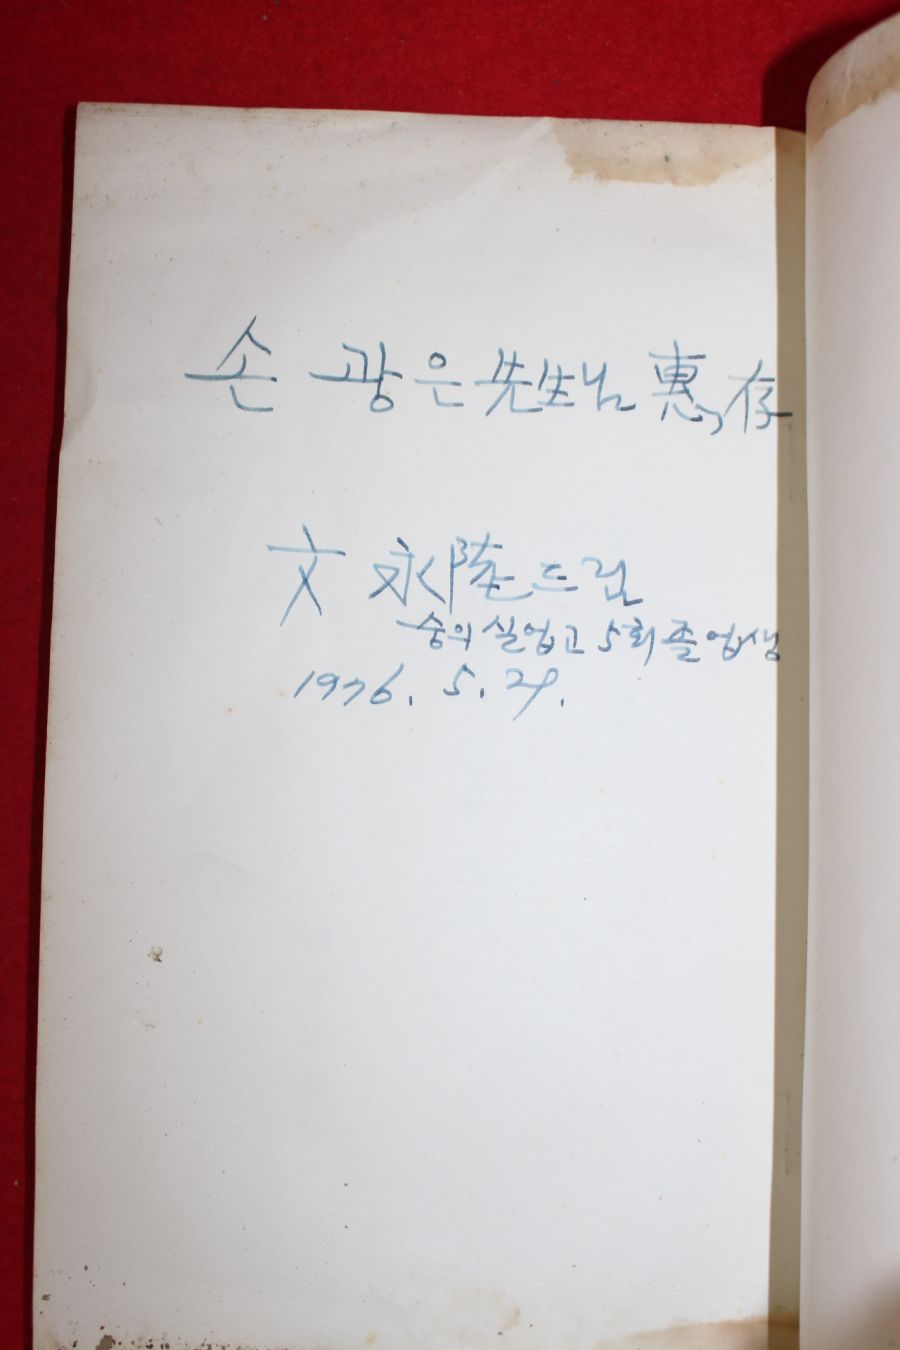 손 광 은 先生님 惠存
文 永 드림
숭의 실업고 5회 졸업생
1976. 5. 29.